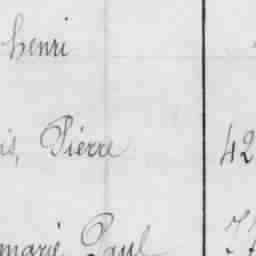 henri
Pierre 42
marie Paul